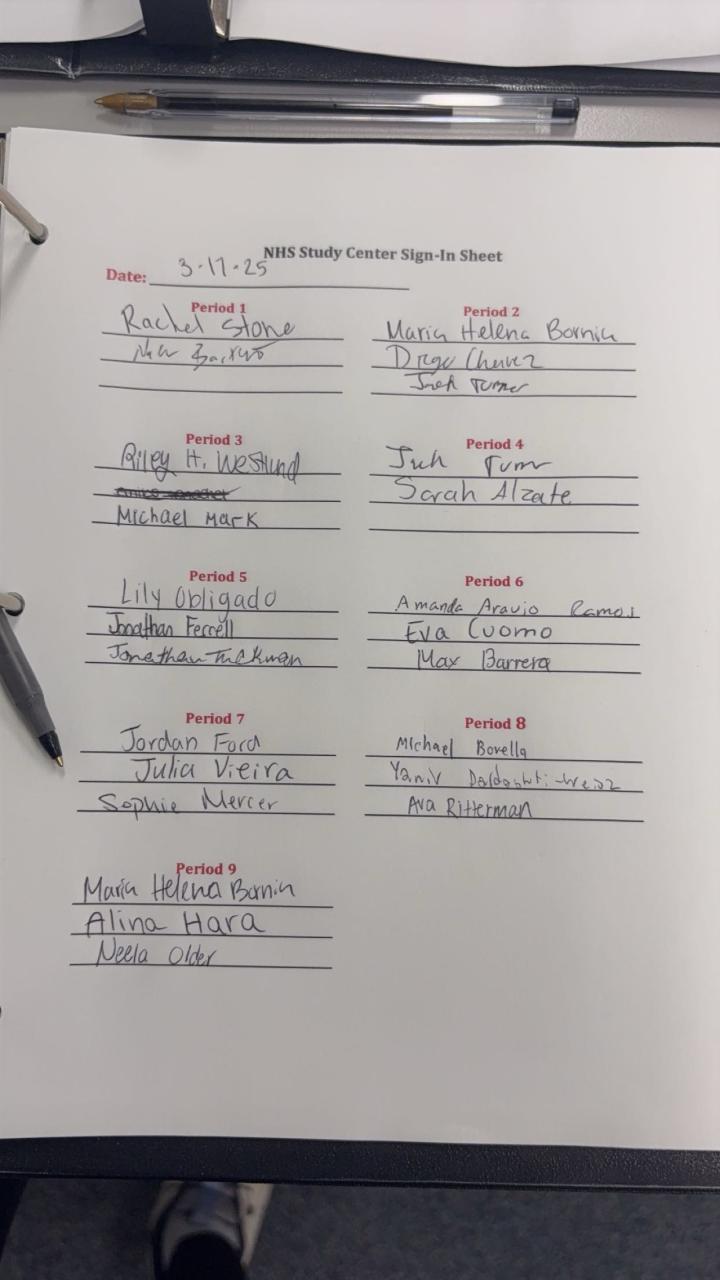 NHS Study Center Sign-In Sheet
Date: 3-17-25
Period 1
Rachel Stone
Period 2
Maria Helena Bornia
Diego Chavez
Turner
Period 3
Riley H. Westlund
Michael Mark
Period 4
Sarah Alzate
Period 5
Lily Obligado
Jonathan Ferrell
Jonathan Tuckman
Period 6
Amanda Araujo Ramos
Eva Cuomo
Max Barrera
Period 7
Jordan Ford
Julia Vieira
Sophie Mercer
Period 8
Michael Bovella
Yaniv
Ava Ritterman
Period 9
Maria Helena Bornia
Alina Hara
Neela Older